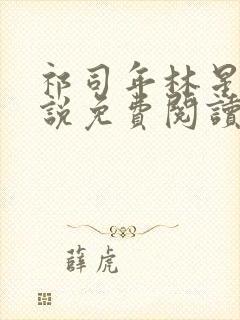 祁司年林星
說免費閱讀
薛虎